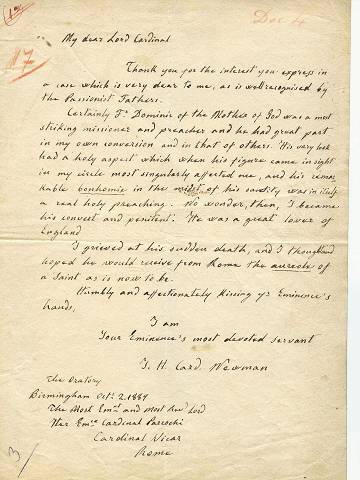 1
Doc 4
17
My dear Lord Cardinal
Thank you for the interest you express in
a case which is very dear to me, as is well recognised by
the Passionist Fathers.
Certainly Fr. Dominic of the Mother of God was a most
striking missioner and preacher and he had great part
in my own conversion and in that of others. His very look
had a holy aspect which when his figure came in sight
in my circle most singularly affected me, and his remar
kable bonhomie in the midst of his sanctity was in itself
a real holy preaching. No wonder, then, I became
his convert and penitent. He was a great lover of
England
I grieved at his sudden death, and I thought and
hoped he would receive from Rome the aureole of
a Saint as is now to be.
Humbly and affectionately Kissing yr Eminence's
hands,
I am
Your Eminence's most devoted servant
J. H. Card. Newman
The Oratory
Birmingham Oct. 2. 1889
The Most Emt and Most Rev Lord
His Emce Cardinal Parocchi
Cardinal Vicar
Rome
3